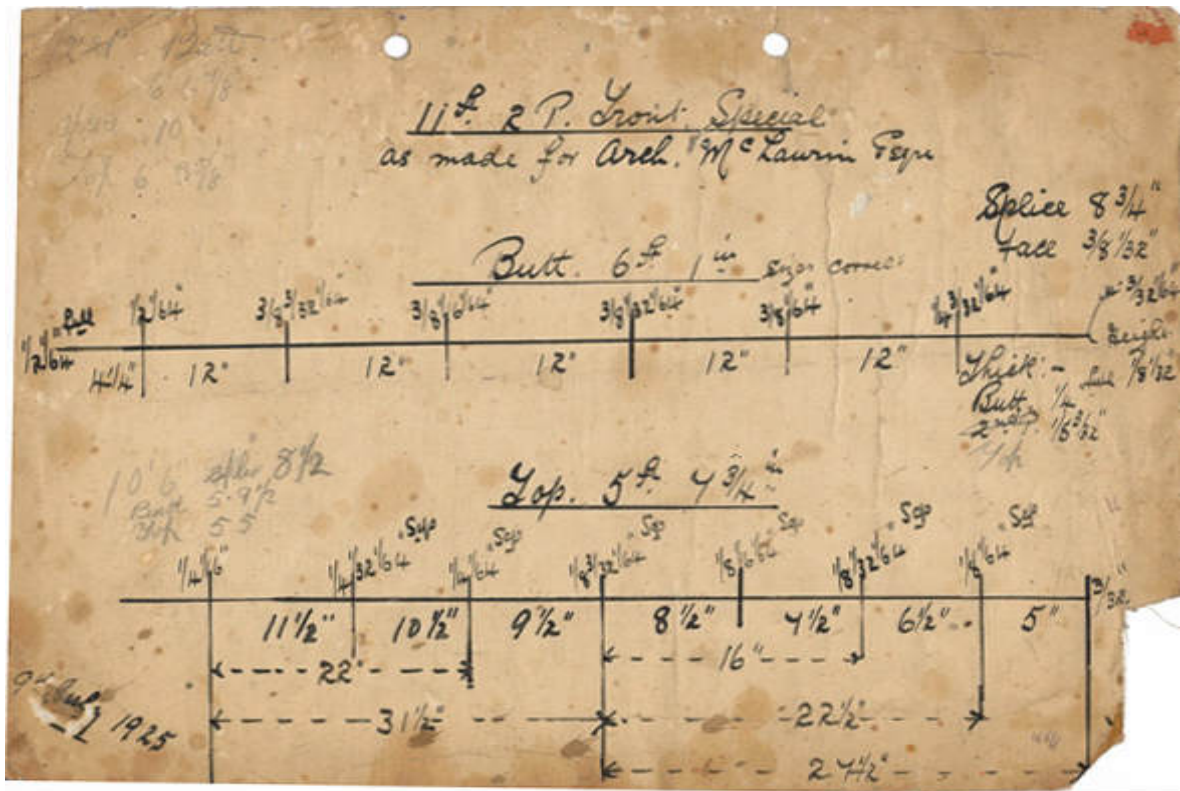 11 ft. 2 P. Trout. Special
as made for Arch. Mc Lawrin Esqre
Splice 8 3/4"
Face 3/8 1/32"
Butt. 6 ft 1 in sizes correct
1/2 1/64" Full
1/2 1/64"
3/8 3/32 1/64"
3/8 1/16 1/64"
3/8 1/32 1/64"
3/8 1/64"
1/4 3/32 1/64"
3/32 1/64
4 1/4" 12" 12" 12" 12" 12"
Thick:-
Butt 1/4
1/8 3/32"
Top
1/8 1/32"
10'6" Splice 8 1/2
Butt 5.9 1/2
Top 5 5
Top. 5 ft. 7 3/4 in
1/4 1/16"
1/4 1/32 1/64"
1/4 1/64"
1/8 3/32 1/64"
1/8 1/16 1/64"
1/8 1/32 1/64"
1/8 1/64"
3/32"
11 1/2" 10 1/2" 9 1/2" 8 1/2" 7 1/2" 6 1/2" 5"
22" 16"
31 1/2" 22 1/2"
27 1/2"
9th July 1925